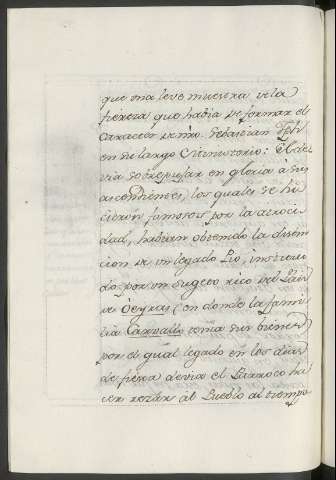 que una leve muestra de la
fiereza que había de formar el
caracter de nro. Sebastian Jph.
en su largo Ministerio. El de
via sobrepujar en gloria á sus
ascendientes, los quales se hi
cieron famosos por la atroci
dad, habian obtenido la distin
cion de un legado Pio, instituido
por un sugeto rico del Pais
de Oeyras (en donde la fami
lia Carvallo tenia sus bienes)
por el qual legado en los dias
de fiesta devia el Parroco ha
cer rezar al Pueblo al tiempo